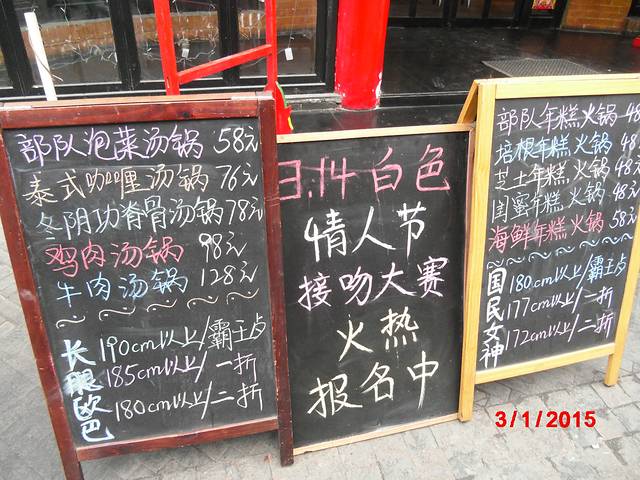 部队泡菜汤锅 58元
泰式咖喱汤锅 76元
冬阴功脊骨汤锅 78元
鸡肉汤锅 98元
牛肉汤锅 128元
长腿欧巴
190cm以上/霸王占
185cm以上/一折
180cm以上/二折
3.14白色
情人节
接吻大赛
火热
报名中
部队年糕火锅 48
培根年糕火锅 48
芝士年糕火锅 48
闺蜜年糕火锅 48
海鲜年糕火锅 58元
国民女神
180cm以上/霸王占
177cm以上/一折
172cm以上/二折
3/1/2015